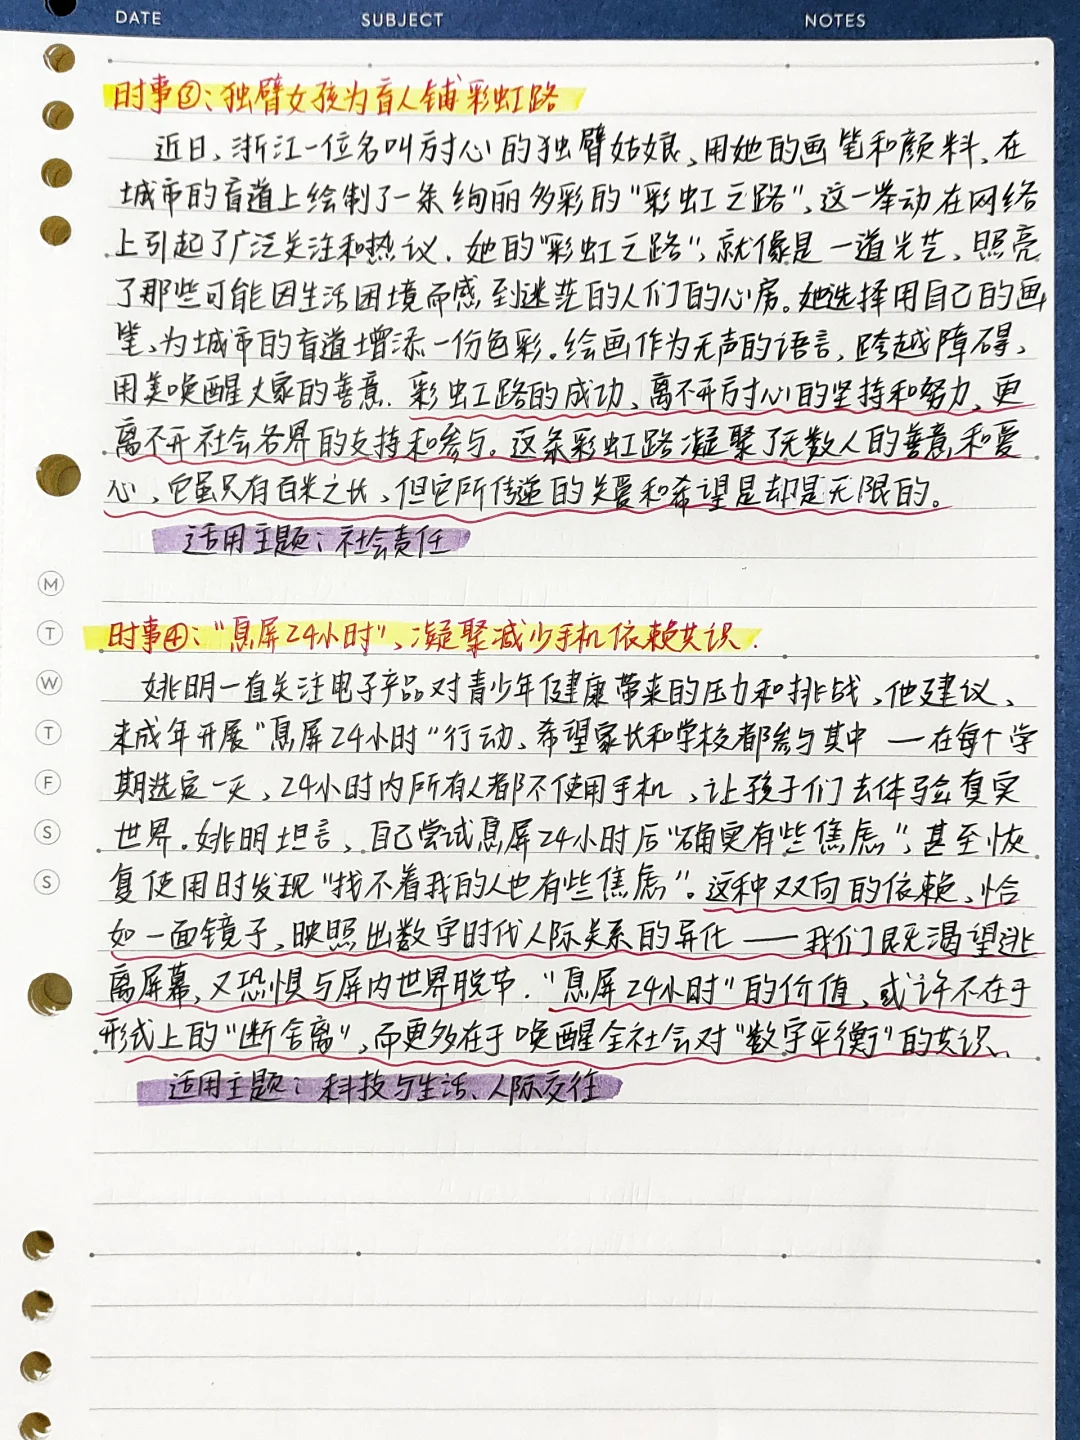 DATE SUBJECT NOTES
时事③:独臂女孩为盲人铺彩虹路
近日,浙江一位名叫方讨心的独臂姑娘,用她的画笔和颜料,在
城市的盲道上绘制了一条绚丽多彩的"彩虹之路",这一举动在网络
上引起了广泛关注和热议.她的"彩虹之路",就像是一道光芒,照亮
了那些可能因生活困境而感到迷茫的人们的心房。她选择用自己的画
笔,为城市的盲道增添一份色彩。绘画作为无声的语言,跨越障碍,
用美唤醒大家的善意.彩虹路的成功,离不开方讨心的坚持和努力,更
离不开社会各界的支持和参与。这条彩虹路凝聚了无数人的善意和爱
心,它虽只有百米之长,但它所传递的关爱和希望是却是无限的。
适用主题:社会责任
时事④:"息屏24小时",凝聚减少手机依赖共识.
姚明一直关注电子产品对青少年健康带来的压力和挑战,他建议,
未成年开展"息屏24小时"行动,希望家长和学校都参与其中—在每个学
期选定一天,24小时内所有人都不使用手机,让孩子们去体验真实
世界.姚明坦言,自己尝试息屏24小时后"确实有些焦虑",甚至恢
复使用时发现"找不着我的人也有些焦虑"。这种双向的依赖,恰
如一面镜子,映照出数字时代人际关系的异化——我们既渴望逃
离屏幕,又恐惧与屏内世界脱节."息屏24小时"的价值,或许不在于
形式上的"断舍离",而更多在于唤醒全社会对"数字平衡"的共识.
适用主题:科技与生活、人际交往
M
T
W
T
F
S
S